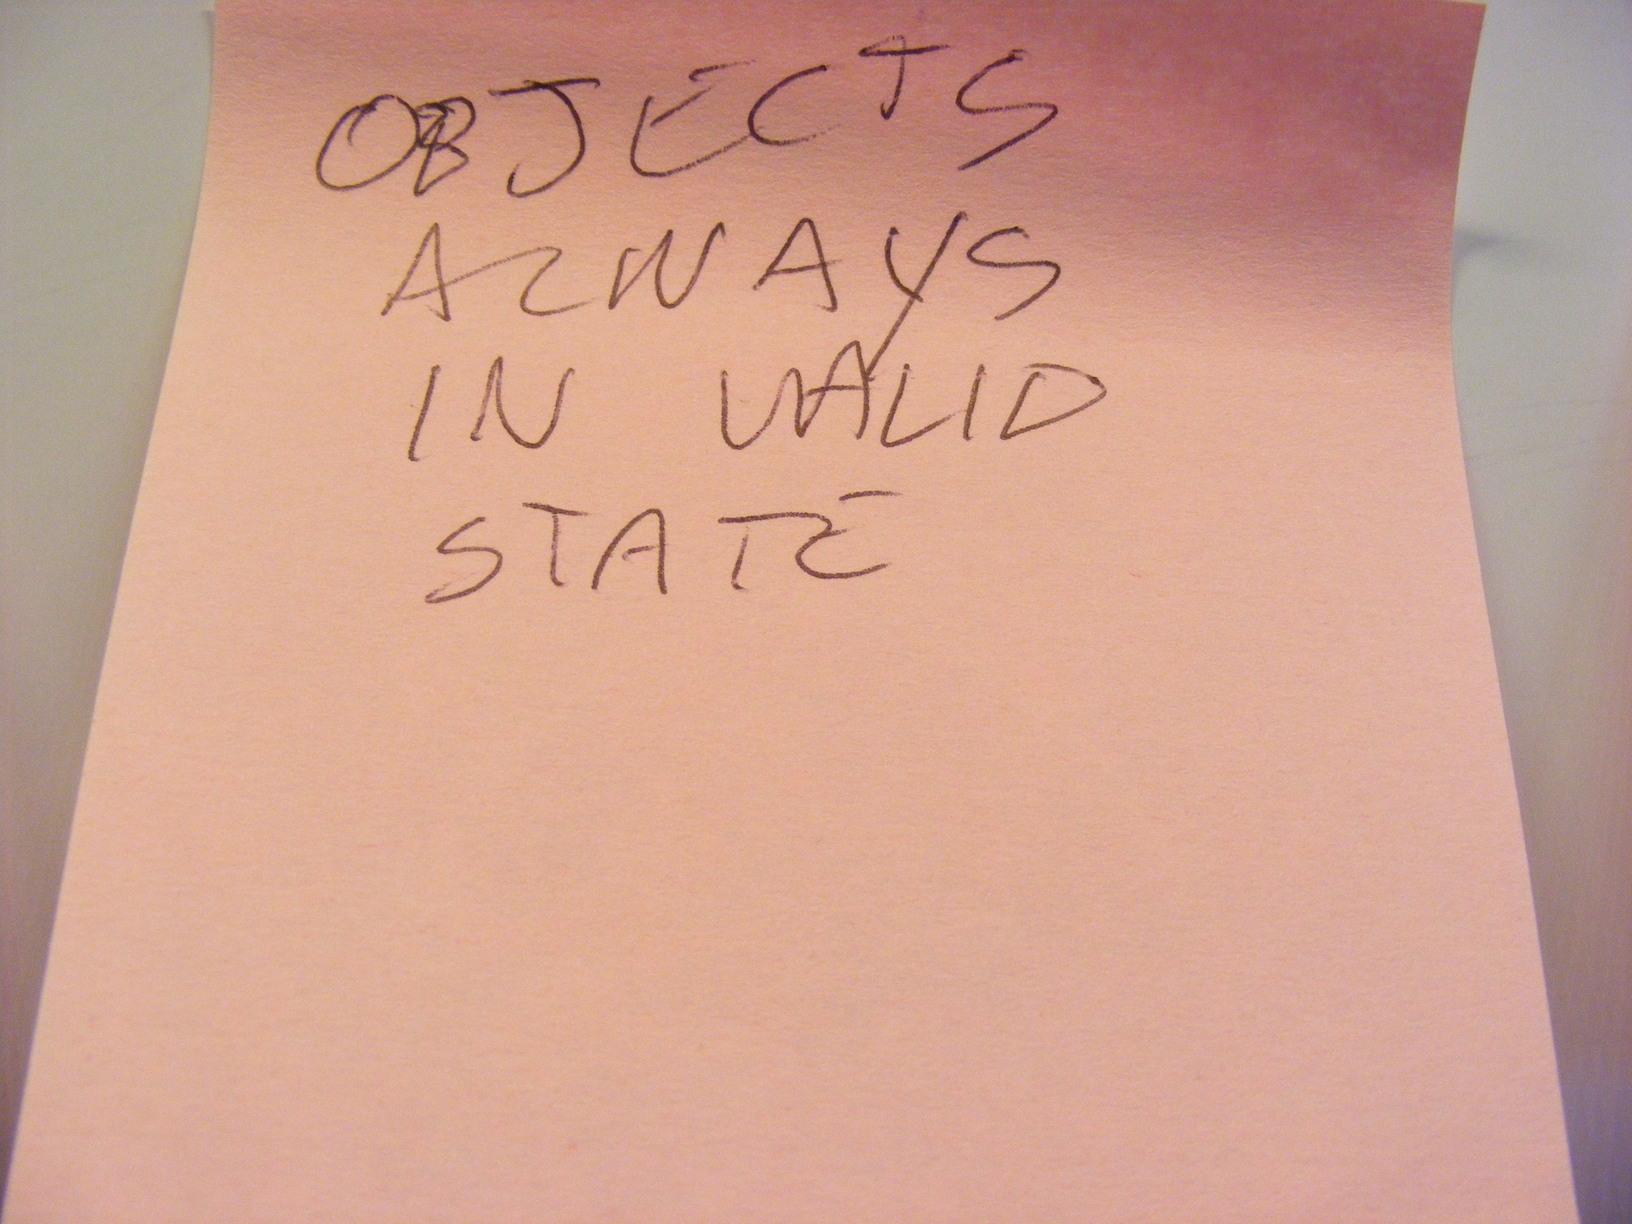 OBJECTS
ALWAYS
IN VALID
STATE